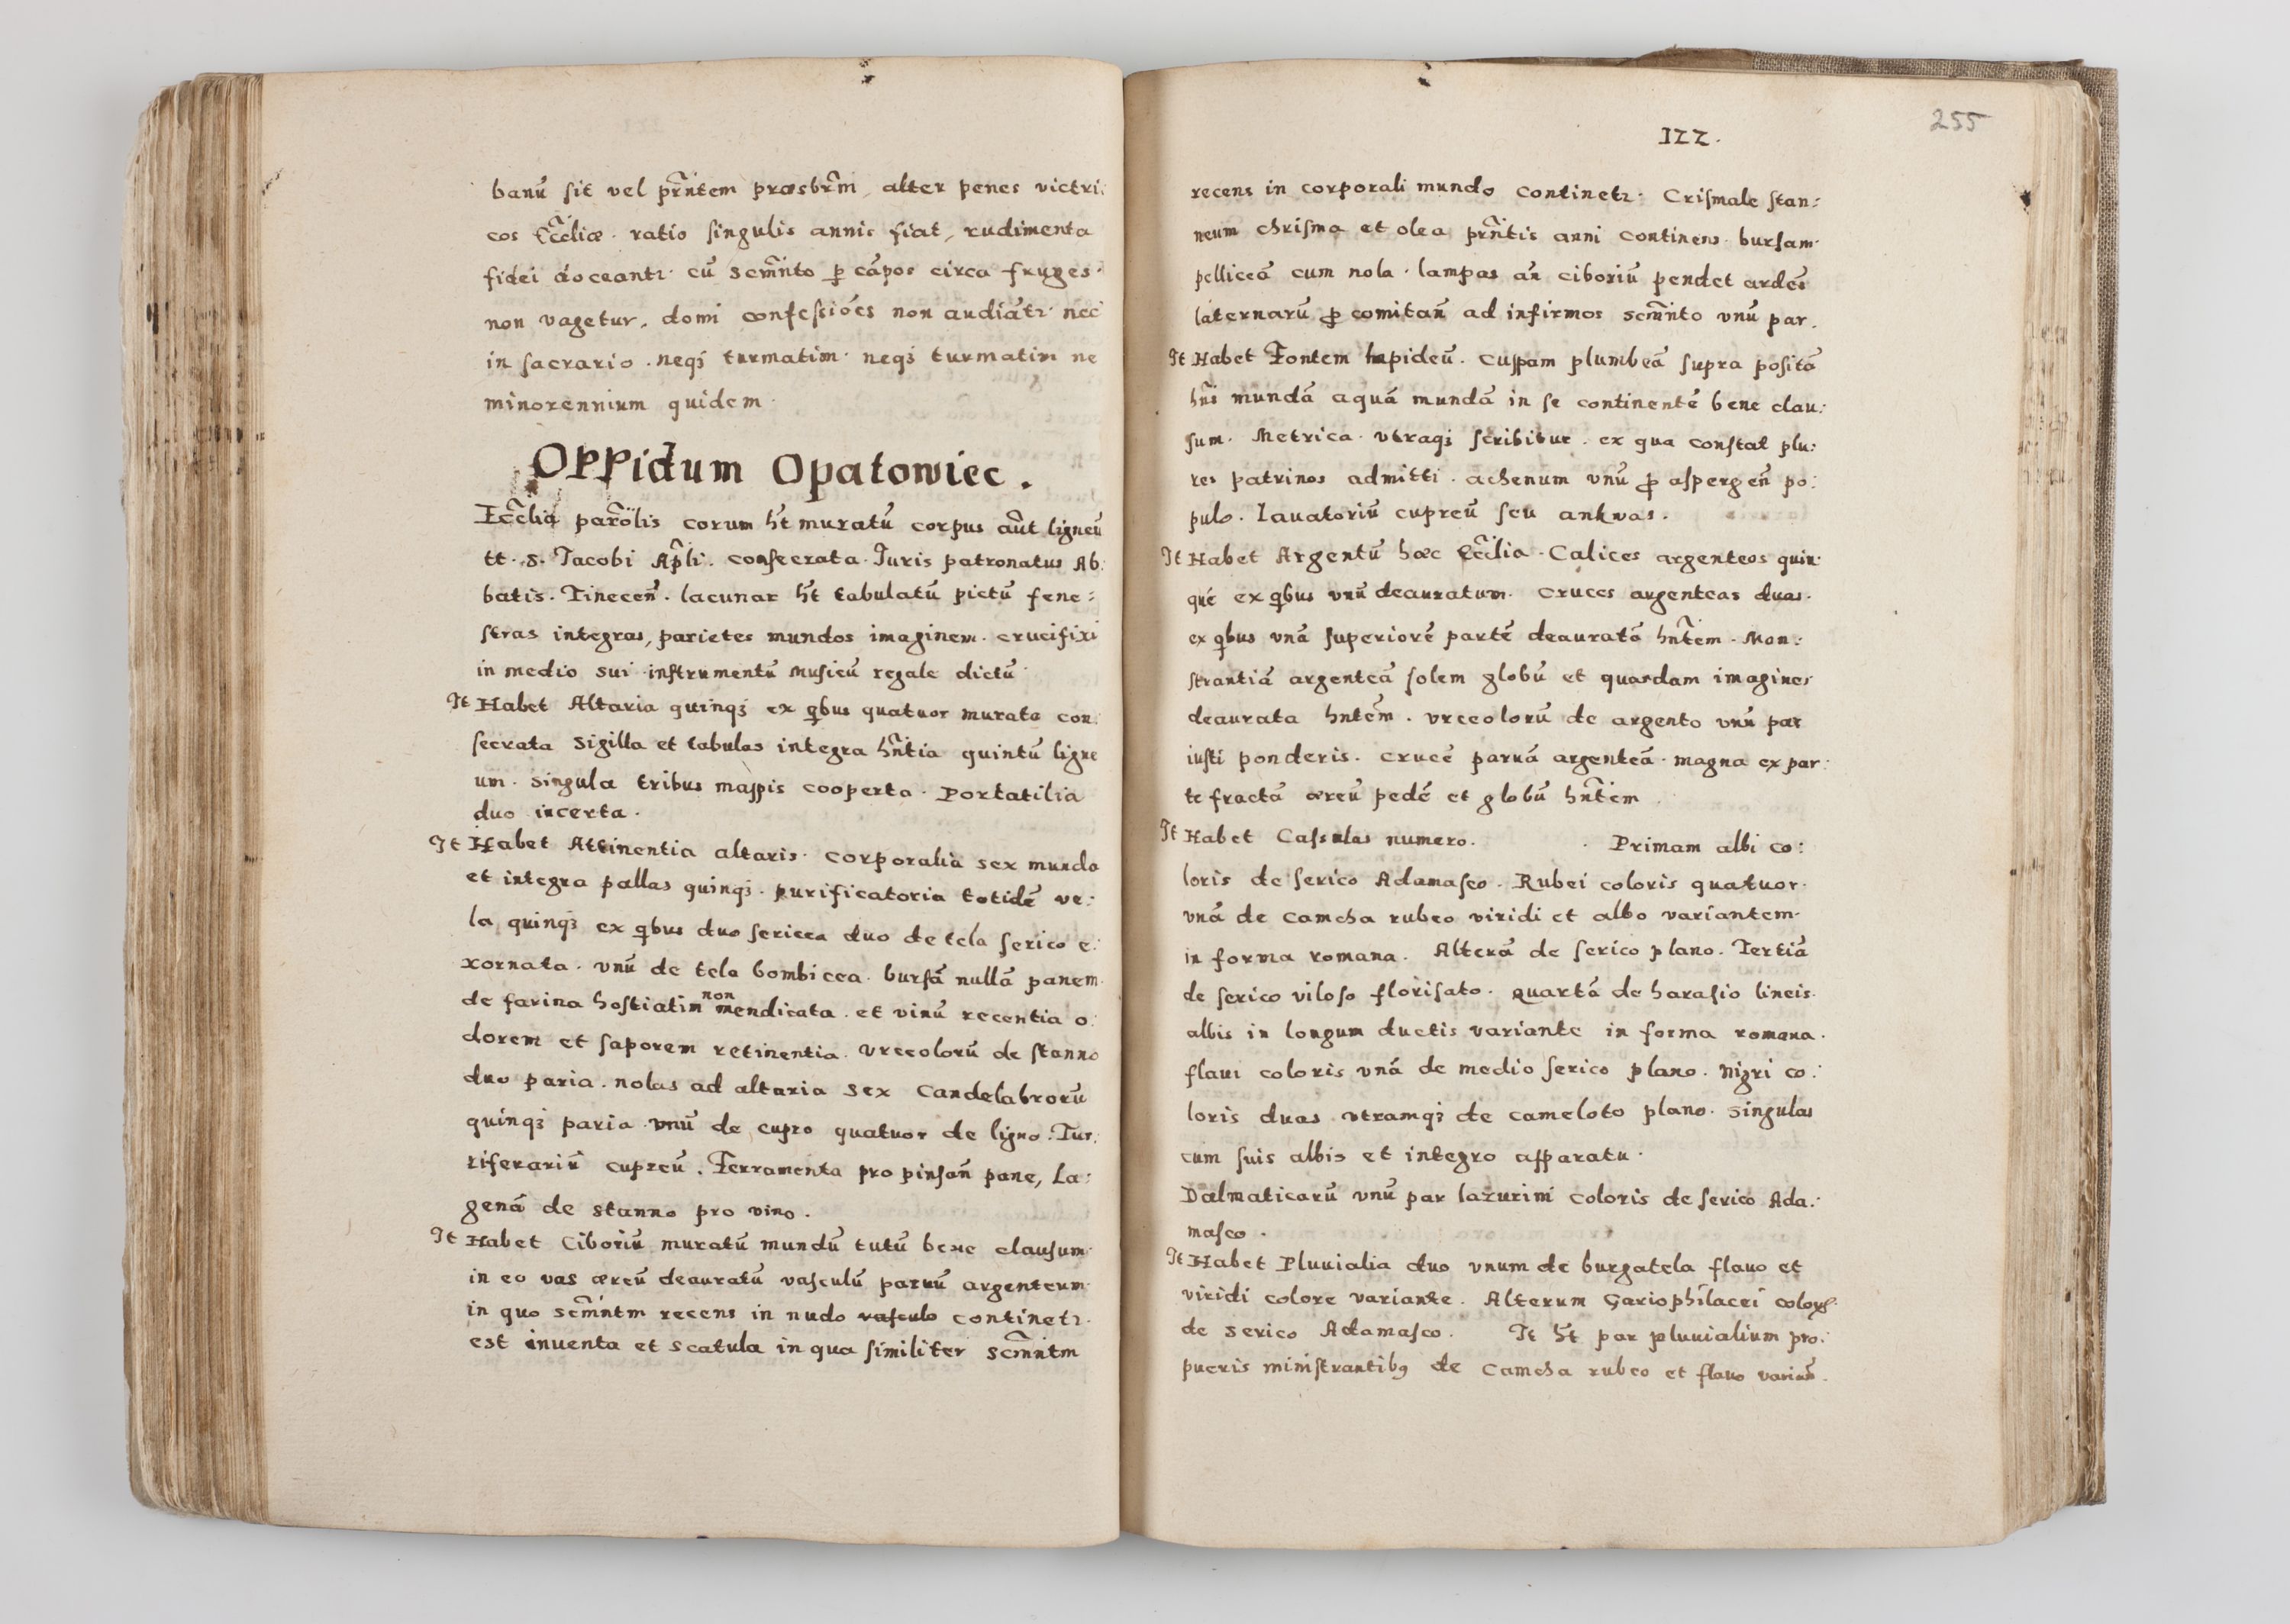 banū sit vel prñtem præsbrm̃, alter penes victri:
cos Eccliæ. ratio singulis annis fiat, rudimenta
fidei doceantr. cū scm̃nto p cāpos circa fruges.
non vagetur. domi confessiões non audiātr. nec
in sacrario. neq3 turmatim. neq3 turmatim ne
minorennium quidem.
Oppidum Opatowiec.
Ecclia parõlis corum ht̃ muratū corpus aũt ligneū
tt. S. Jacobi Apli. consecrata. Juris patronatus Ab:
batis. Tineceñ. lacunar ht̃ tabulatū pictū fene:
stras integras, parietes mundos imaginem. crucifixi
in medio sui instrumentū musicū regale dictū.
It Habet Altaria quinq3 ex qbus quatuor murata con:
secrata sigilla et tabulas integra hñtia quintū ligne
um. singula tribus mappis cooperta. Portatilia
duo incerta.
It Habet Attinentia altaris. corporalia sex munda
et integra pallas quinq3. purificatoria totidē ve:
la quinq3 ex qbus duo sericea duo de tela serico e:
xornata. vnū de tela bombicea. bursā nullā panem.
de farina hostiatim non mendicata. et vinū recentia o:
dorem et saporem retinentia. vrceolorū de stanno
duo paria. nolas ad altaria sex Candelabrorū
quinq3 paria vnū de cupro quatuor de ligno. Tur:
riferariū cupreū. Ferramenta pro pinsañ pane, La:
genā de stanno pro vino.
It Habet Ciboriū muratū mundū tutū bene clausum.
in eo vas æreū deauratū vasculū paruū argenteum
in quo scm̃ntm recens in nudo vasculo continetr.
est inuenta et scatula in qua similiter scm̃ntm
255
122.
recens in corporali mundo continetr. Crismale stan:
neum chrisma et olea prñtis anni continens. bursam.
pelliceā cum nola. lampas añ ciboriū pendet ardēs
laternarū p comitañ ad infirmos scm̃nto vnū par.
It Habet Fontem lapideū. cuppam plumbeā supra positā
hñs mundā aquā mundā in se continentē bene clau:
sum. Metrica. vtraq3 scribitur. ex qua constat plu:
res patrinos admitti. achenum vnū p aspergeñ po:
pulo. Lauatoriū cupreū seu ankuas.
It Habet Argentū hæc Ecclia. Calices argenteos quin:
qué ex qbus vnū deauratum. cruces argenteas duas.
ex qbus vnā superiorē partē deauratā hñtem. Mon:
strantiā argenteā solem globū et quasdam imagines
deaurata hntẽm. vrceolorū de argento vnū par
iusti ponderis. crucē paruā argenteā. magna ex par:
te fractā æreū pedē et globū hñtem.
It Habet Cassulas numero. Primam albi co:
loris de serico Adamasco. Rubei coloris quatuor.
vnā de camcha rubeo viridi et albo variantem.
in forma romana. Alterā de serico plano. Tertiā
de serico viloso florisato. quartā de harasio lineis.
albis in longum ductis variante in forma romana.
flaui coloris vnā de medio serico plano. Nigri co:
loris duas vtramq3 de cameloto plano. singulas
cum suis albis et integro apparatu.
Dalmaticarū vnū par lazurini coloris de serico Ada:
masco.
It Habet Pluuialia duo vnum de burgatela flauo et
viridi colore variante. Alterum Gariophilacei color.
de serico Adamasco. It ht̃ par pluuialium pro:
pueris ministrantib9 de Camcha rubeo et flauo variañ.